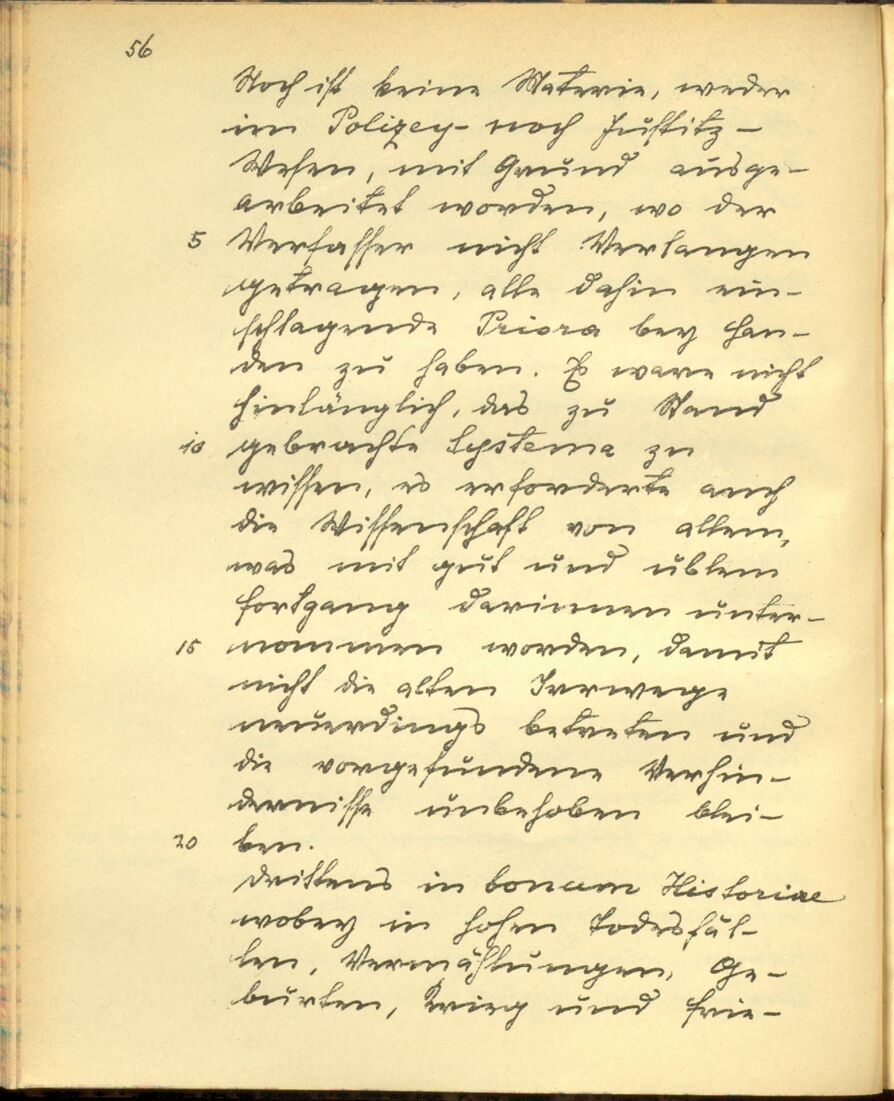 56
Noch ist keine Materie, weder
im Polizey- noch Justitz-
Wesen, mit Grund ausge-
arbeitet worden, wo der
5 Verfasser nicht Verlangen
getragen, alle dahin ein-
schlagende Priora bey han-
den zu haben. Es ware nicht
hinlänglich, das zu Stand
10 gebrachte Systema zu
wissen, es erforderte auch
die Wissenschaft von allem,
was mit gut und üblem
fortgang darinnen unter-
15 nommen worden, damit
nicht die alten Irrwege
neuerdings betreten und
die vorgefundene Verhin-
dernisse unbehoben blei-
20 ben.
drittens in bonum Historiae
wobey in hohen Todesfäl-
len, Vermählungen, Ge-
burten, Krieg und frie-